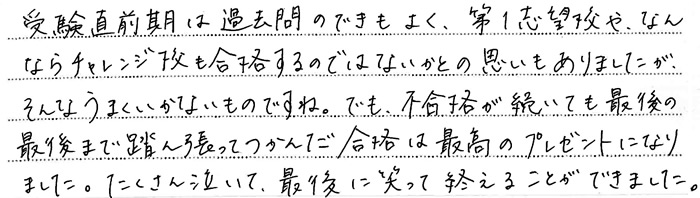 受験直前期は過去問のできもよく、第1志望校や、なん
ならチャレンジ校も合格するのではないかとの思いもありましたが、
そんなうまくいかないものですね。でも、不合格が続いても最後の
最後まで踏ん張ってつかんだ合格は最高のプレゼントになり
ました。たくさん泣いて、最後に笑って終えることができました。